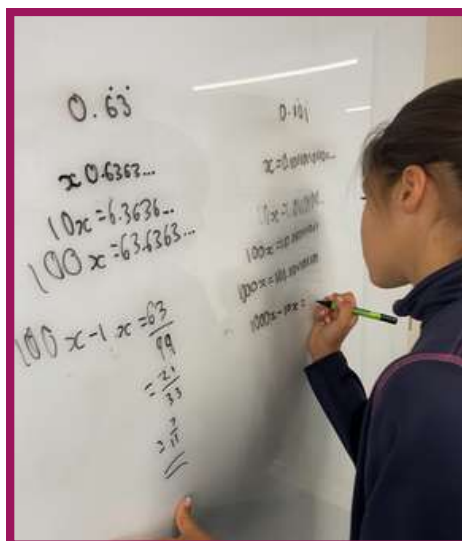 0.6̇3̇
x 0.6363...
10x = 6.3636...
100x = 63.6363...
100x - 1x = 63/99
= 21/33
= 7/11
x =
100x =
1000x =
1000x - 10x =